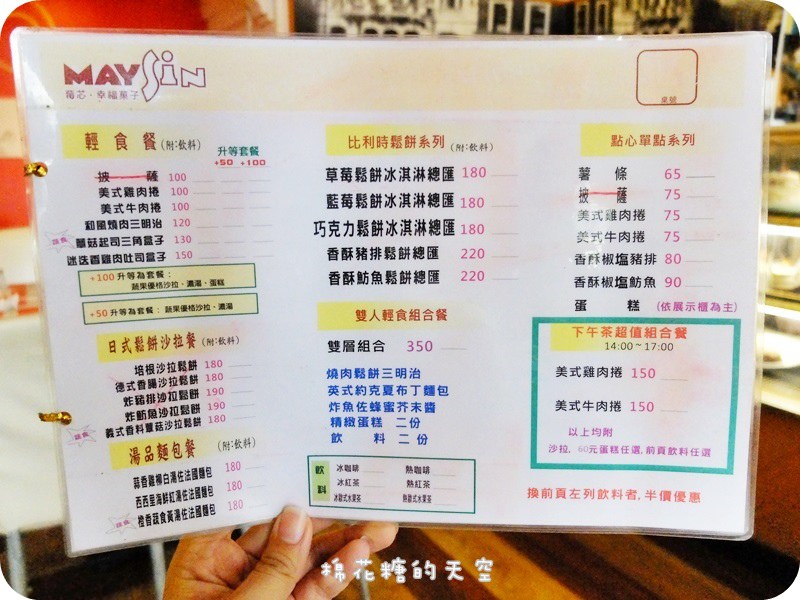 MAYSiN
莓芯·幸福菓子
桌號
輕食餐(附:飲料)
升等套餐
+50 +100
披薩 100
美式雞肉捲 100
美式牛肉捲 100
和風燒肉三明治 120
蔬食 蘑菇起司三角盒子 130
迷迭香雞肉吐司盒子 150
+100 升等為套餐：
蔬果優格沙拉、濃湯、蛋糕
+50 升等為套餐：蔬果優格沙拉、濃湯
日式鬆餅沙拉餐(附:飲料)
培根沙拉鬆餅 180
德式香腸沙拉鬆餅 180
炸豬排沙拉鬆餅 190
炸魴魚沙拉鬆餅 190
蔬食 義式香料蘑菇沙拉鬆餅 180
湯品麵包餐(附:飲料)
蒜香雞柳白湯佐法國麵包 180
西西里海鮮紅湯佐法國麵包 180
蔬食 橙香蔬食黃湯佐法國麵包 180
比利時鬆餅系列(附:飲料)
草莓鬆餅冰淇淋總匯 180
藍莓鬆餅冰淇淋總匯 180
巧克力鬆餅冰淇淋總匯 180
香酥豬排鬆餅總匯 220
香酥魴魚鬆餅總匯 220
雙人輕食組合餐
雙層組合 350
燒肉鬆餅三明治
英式約克夏布丁麵包
炸魚佐蜂蜜芥末醬
精緻蛋糕 二份
飲料 二份
飲料
冰咖啡 熱咖啡
冰紅茶 熱紅茶
冰歐式水果茶 熱歐式水果茶
點心單點系列
薯條 65
披薩 75
美式雞肉捲 75
美式牛肉捲 75
香酥椒塩豬排 80
香酥椒塩魴魚 90
蛋糕 (依展示櫃為主)
下午茶超值組合餐
14:00~17:00
美式雞肉捲 150
美式牛肉捲 150
以上均附
沙拉, 60元蛋糕任選,前頁飲料任選
換前頁左列飲料者,半價優惠
棉花糖的天空